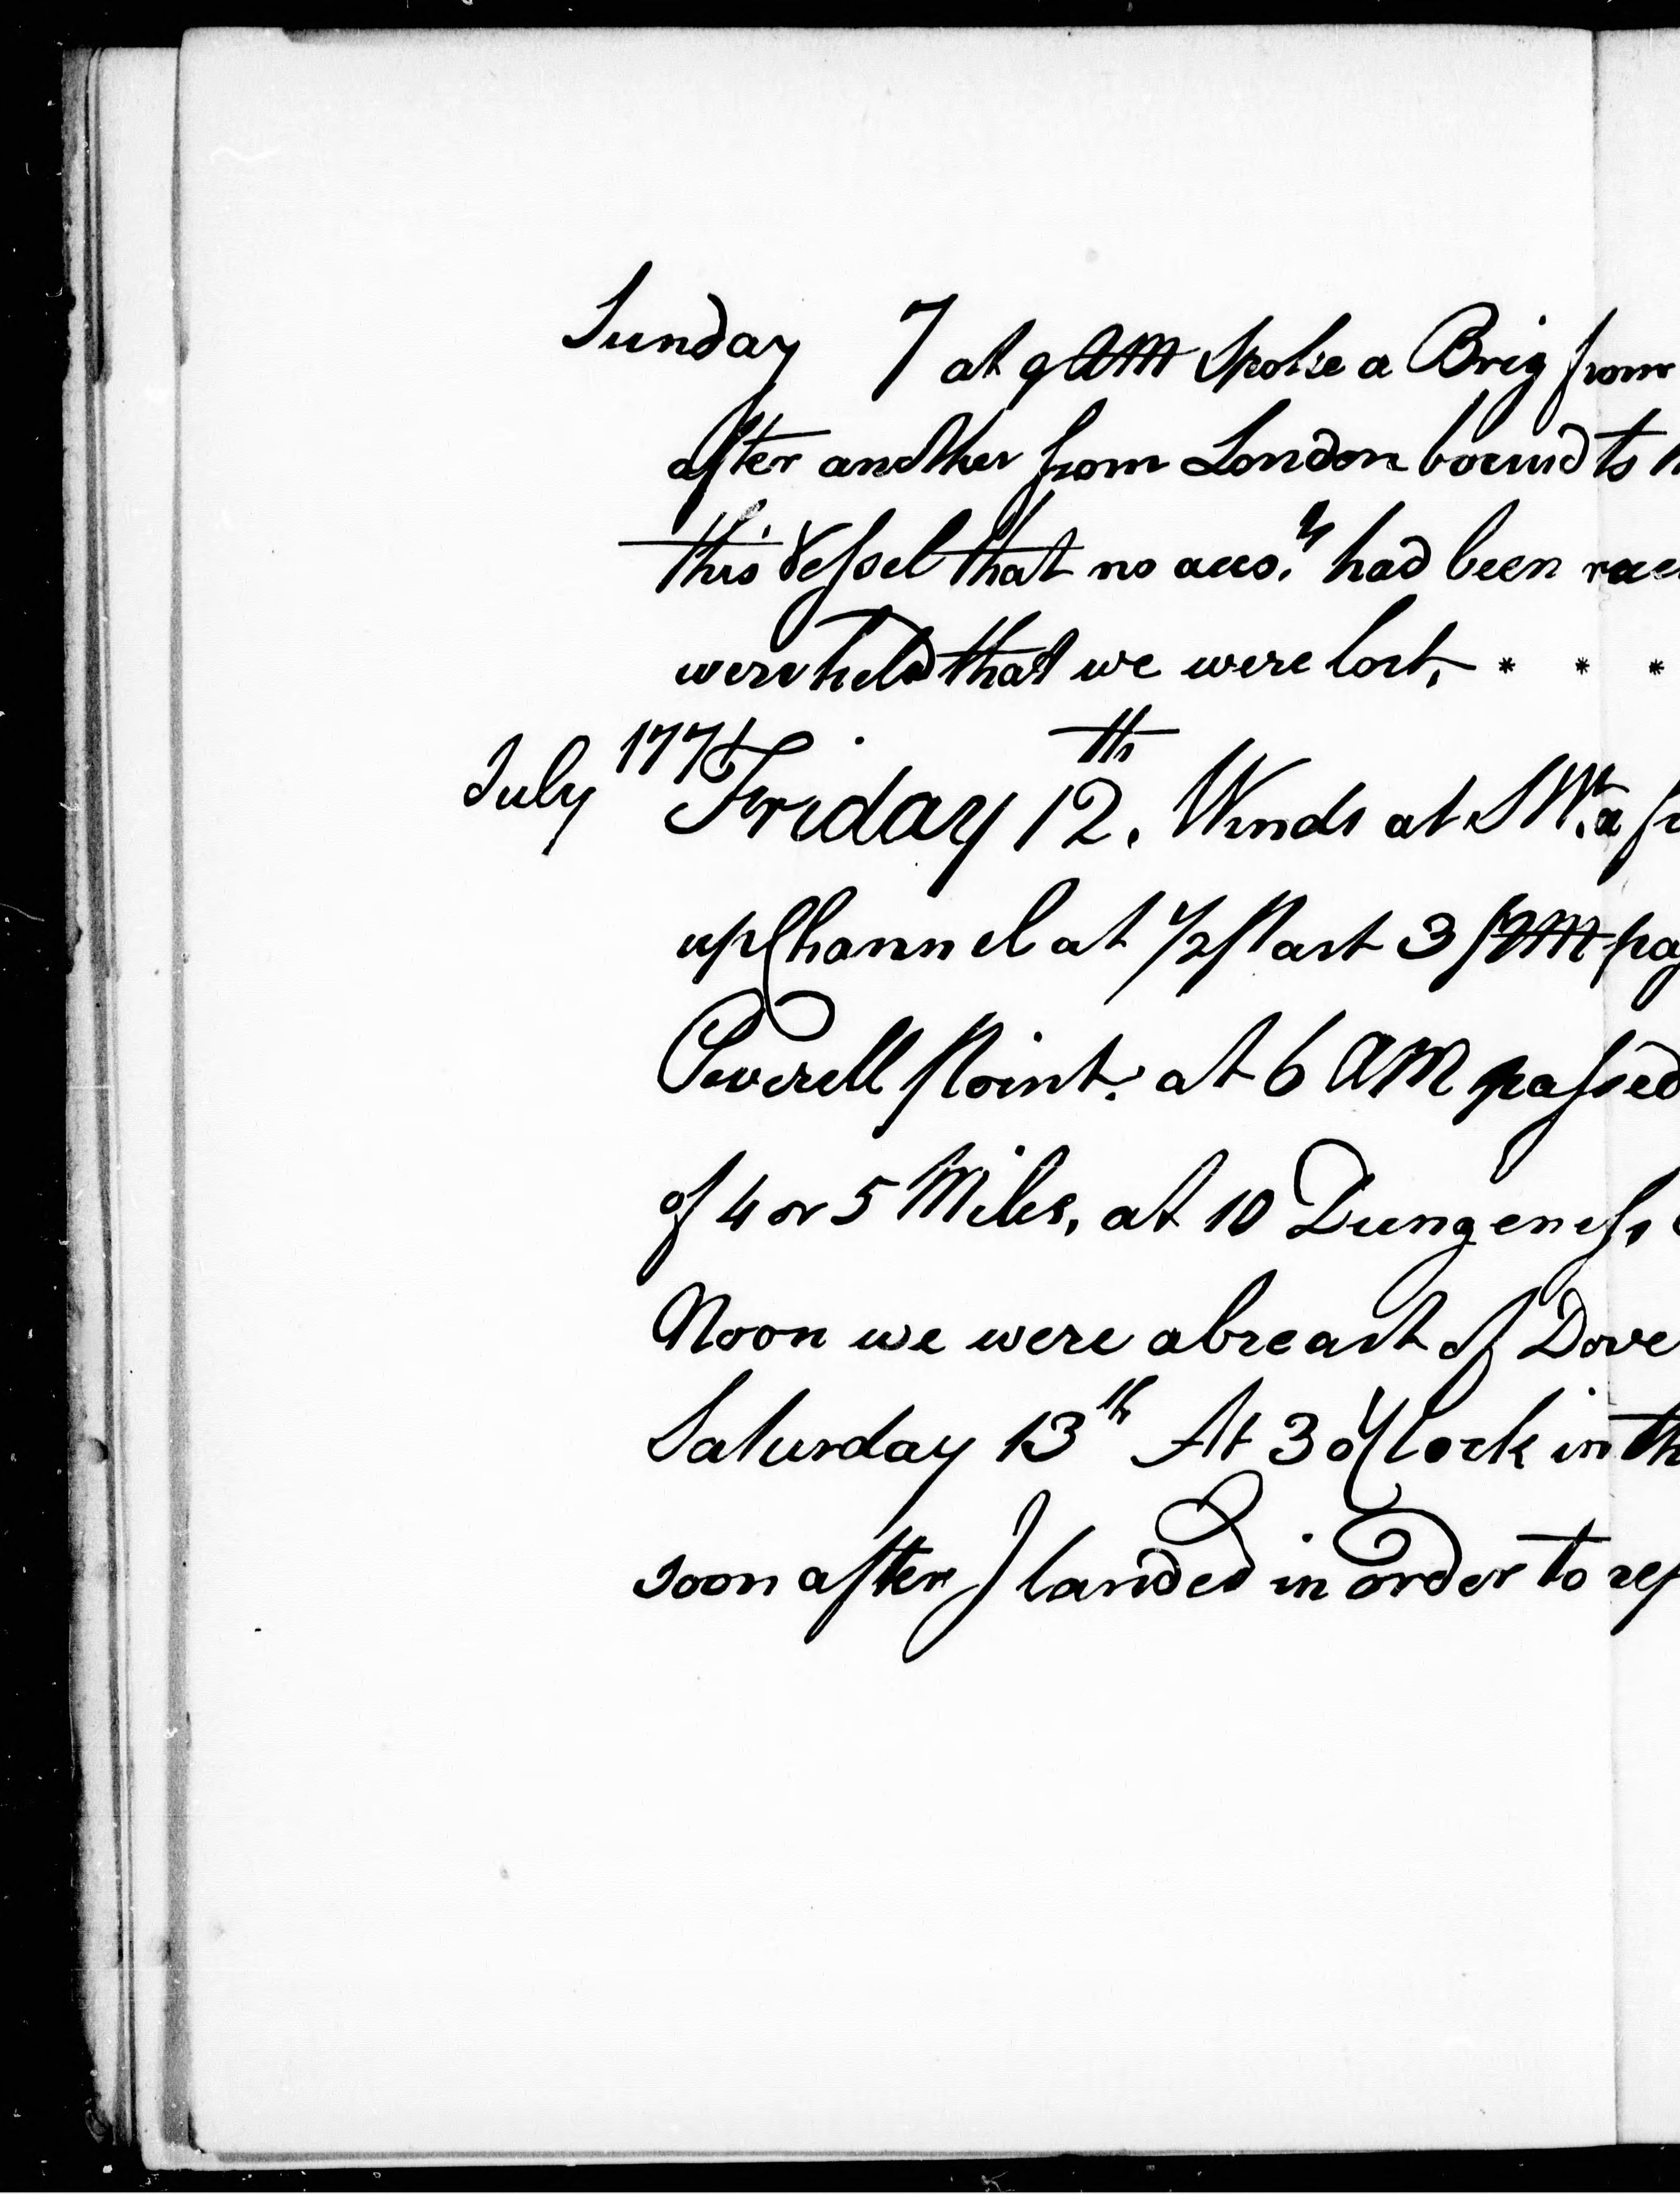 Sunday 7 at 9 AM Spoke a Brig from
after another from London bound to
this Vessel that no acco.ts had been rec
were held that we were lost. * * *
July 1771 Friday 12th. Winds at SW. a f
up Channel at 1/2 Past 3 PM pa
Peverell Point. at 6 AM passed
of 4 or 5 Miles, at 10 Dungeness,
Noon we were abreast of Dove
Saturday 13th At 3 oClock in th
soon after I landed in order to rep